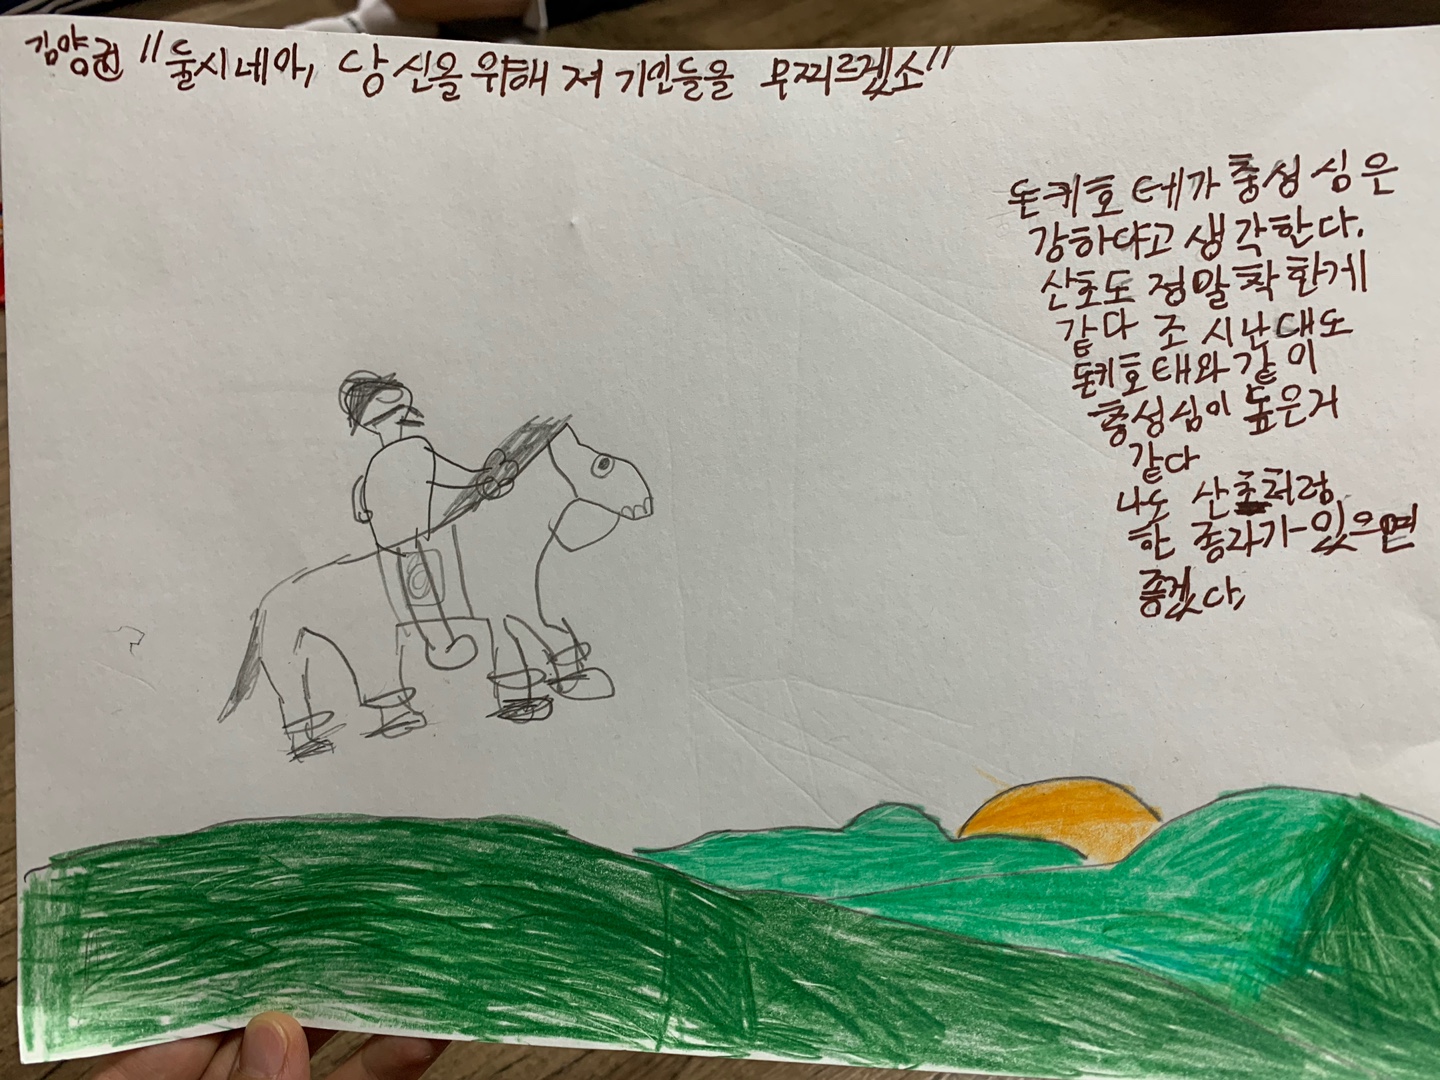 김양권 "둘시네아, 당신을 위해 저 기인들을 무찌르겠소"
돈키호테가 충성심은
강하다고 생각한다.
산초도 정말 착한게
같다 조 시난대도
돈키호태와 같이
충성심이 높은거
같다
나도 산초처럼
한 종라가 있으면
좋겠다,